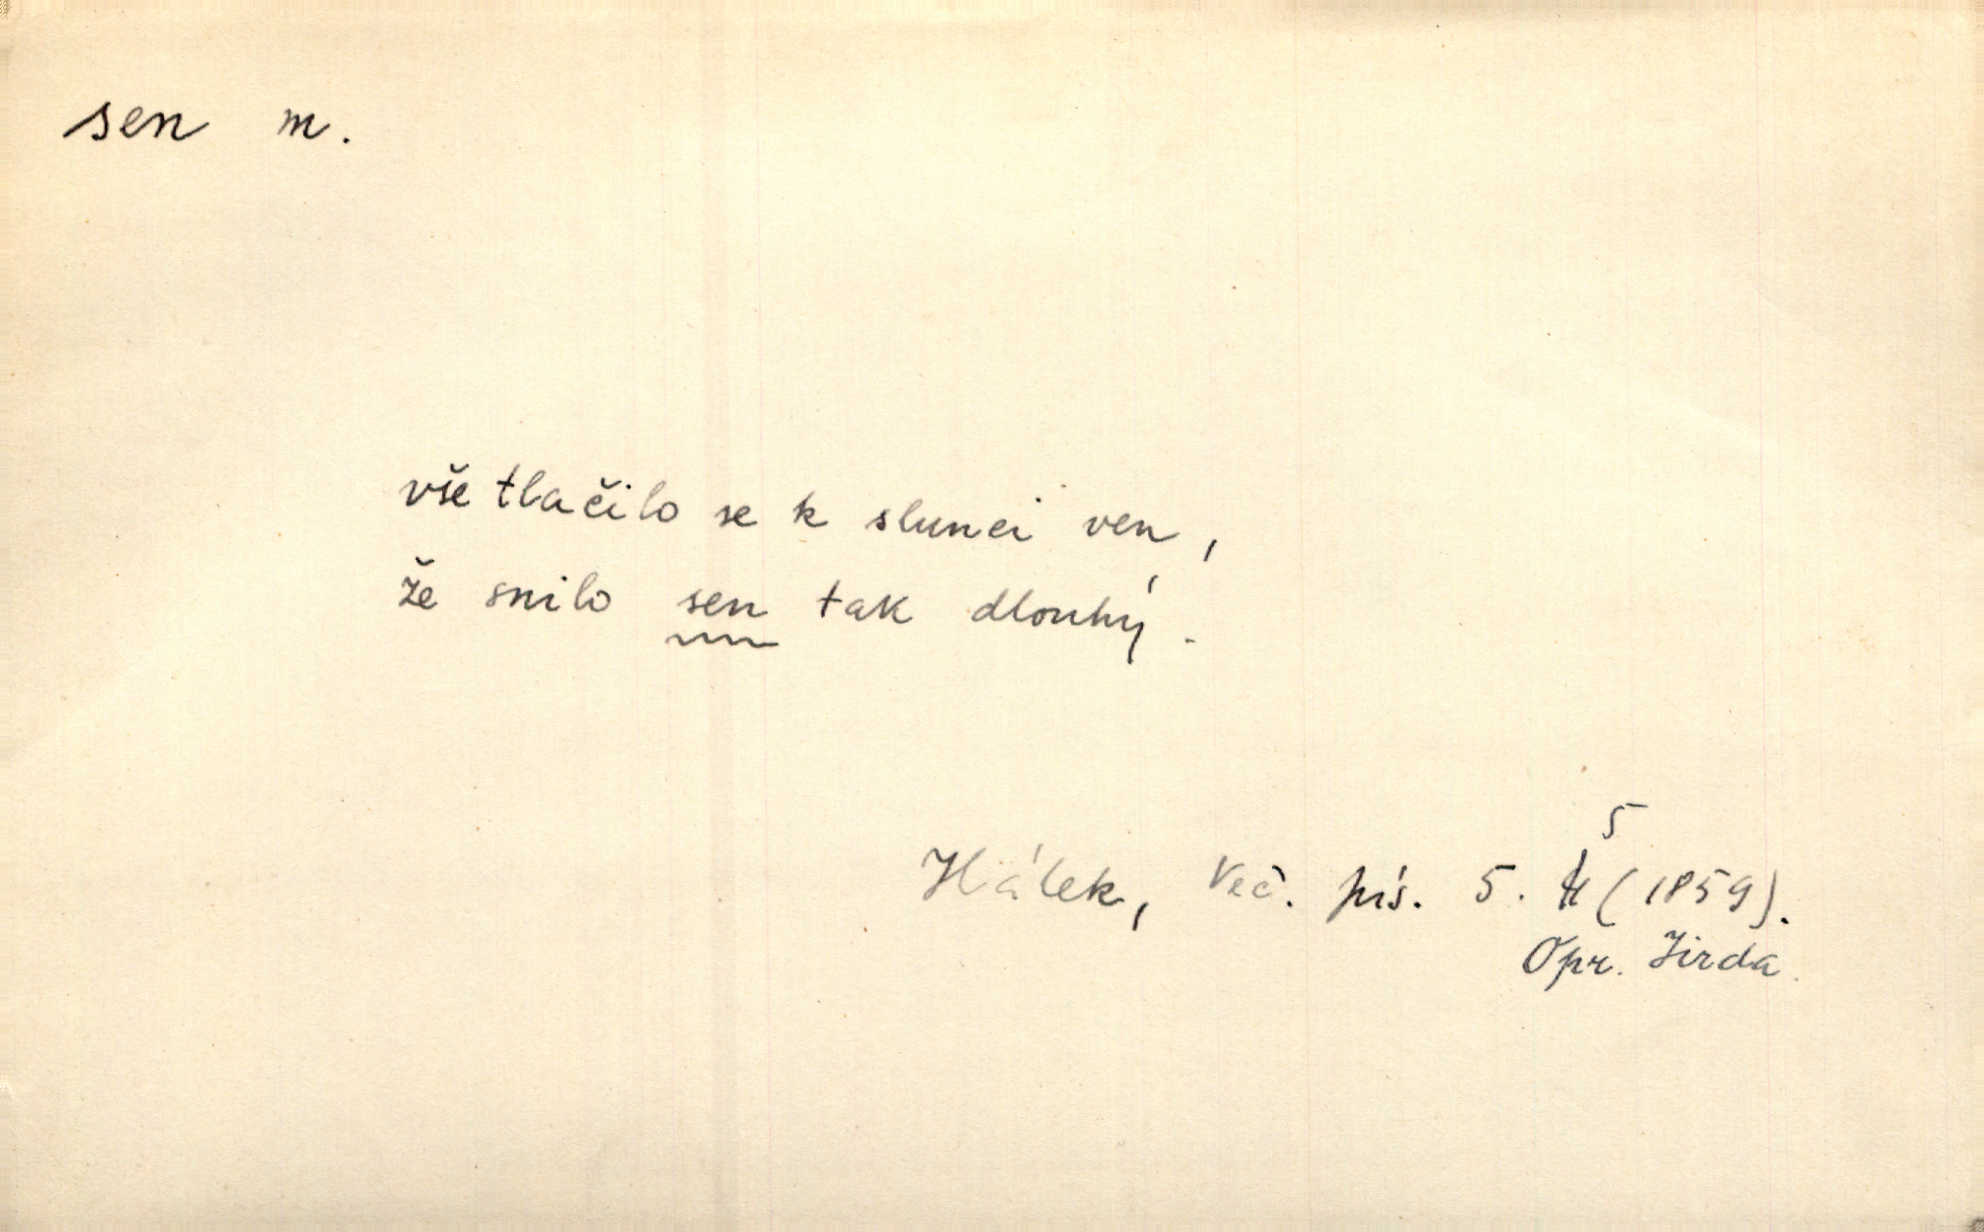 sen m.
vše tlačilo se k slunci ven,
že snilo sen tak dlouhý.
5
Hálek, Več. pís. 5. (1859).
Opr. Jirda.